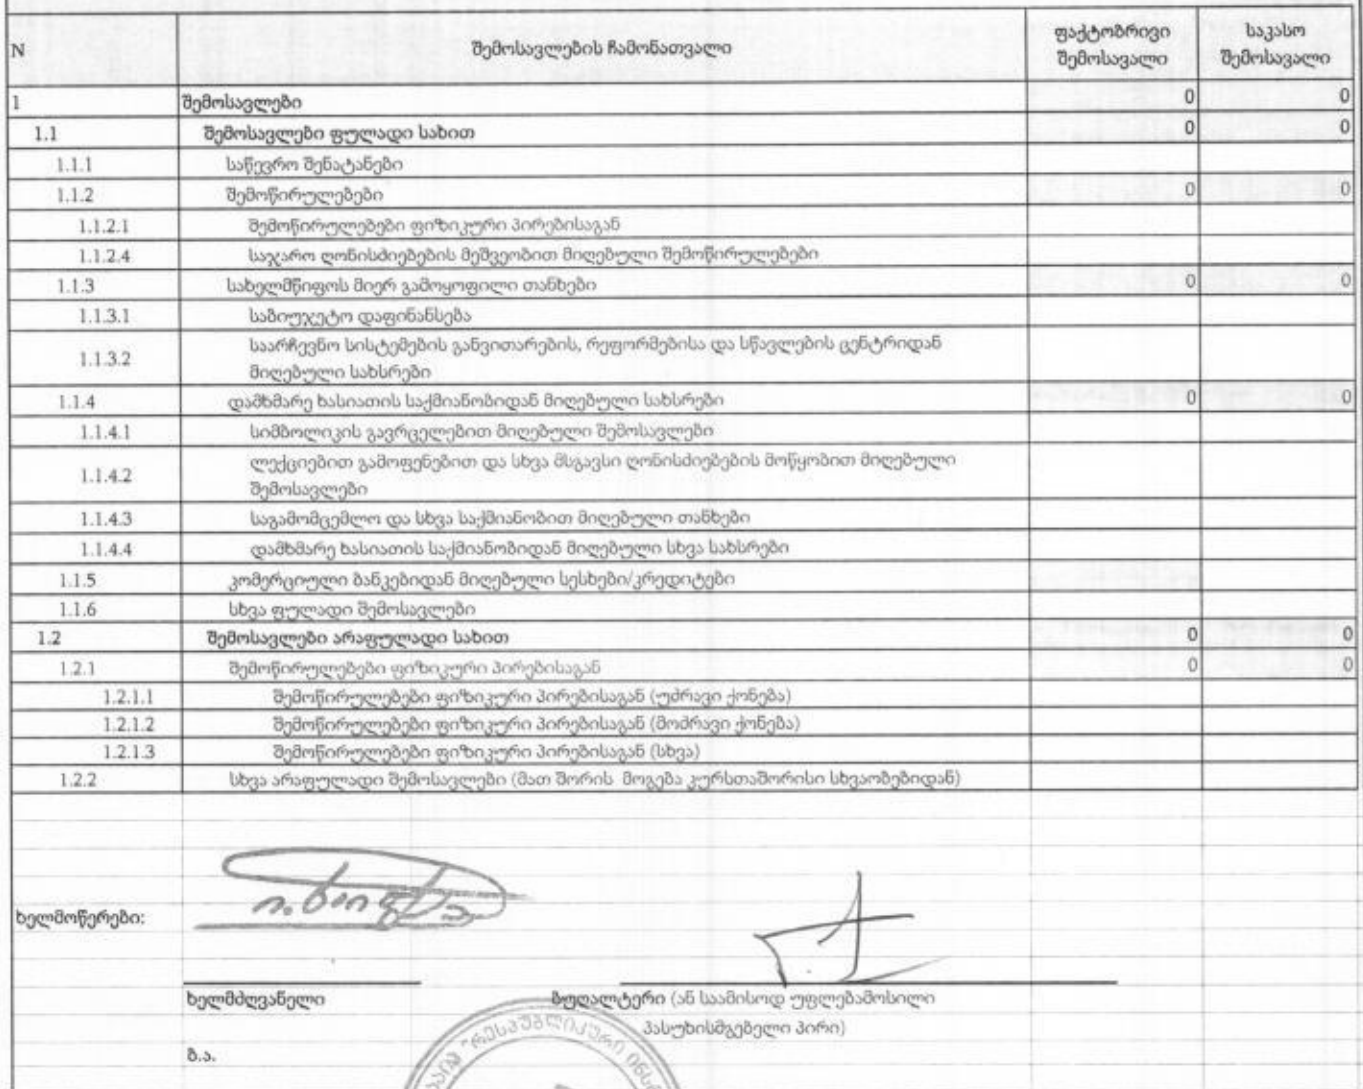 N შემოსავლების ჩამონათვალი ფაქტობრივი შემოსავალი საკასო შემოსავალი
1 შემოსავლები 0 0
1.1 შემოსავლები ფულადი სახით 0 0
1.1.1 საწევრო შენატანები
1.1.2 შემოწირულებები 0 0
1.1.2.1 შემოწირულებები ფიზიკური პირებისაგან
1.1.2.4 საჯარო ღონისძიებების მეშვეობით მიღებული შემოწირულებები
1.1.3 სახელმწიფოს მიერ გამოყოფილი თანხები 0 0
1.1.3.1 საბიუჯეტო დაფინანსება
1.1.3.2 საარჩევნო სისტემების განვითარების, რეფორმებისა და სწავლების ცენტრიდან
მიღებული სახსრები
1.1.4 დამხმარე ხასიათის საქმიანობიდან მიღებული სახსრები 0 0
1.1.4.1 სიმბოლიკის გავრცელებით მიღებული შემოსავლები
1.1.4.2 ლექციებით გამოფენებით და სხვა მსგავსი ღონისძიებების მოწყობით მიღებული
შემოსავლები
1.1.4.3 საგამომცემლო და სხვა საქმიანობით მიღებული თანხები
1.1.4.4 დამხმარე ხასიათის საქმიანობიდან მიღებული სხვა სახსრები
1.1.5 კომერციული ბანკებიდან მიღებული სესხები/კრედიტები
1.1.6 სხვა ფულადი შემოსავლები
1.2 შემოსავლები არაფულადი სახით 0 0
1.2.1 შემოწირულებები ფიზიკური პირებისაგან 0 0
1.2.1.1 შემოწირულებები ფიზიკური პირებისაგან (უძრავი ქონება)
1.2.1.2 შემოწირულებები ფიზიკური პირებისაგან (მოძრავი ქონება)
1.2.1.3 შემოწირულებები ფიზიკური პირებისაგან (სხვა)
1.2.2 სხვა არაფულადი შემოსავლები (მათ შორის მოგება კურსთაშორისი სხვაობებიდან)
ხელმოწერები:
ხელმძღვანელი ბუღალტერი (ან საამისოდ უფლებამოსილი
პასუხისმგებელი პირი)
ბ.ა.